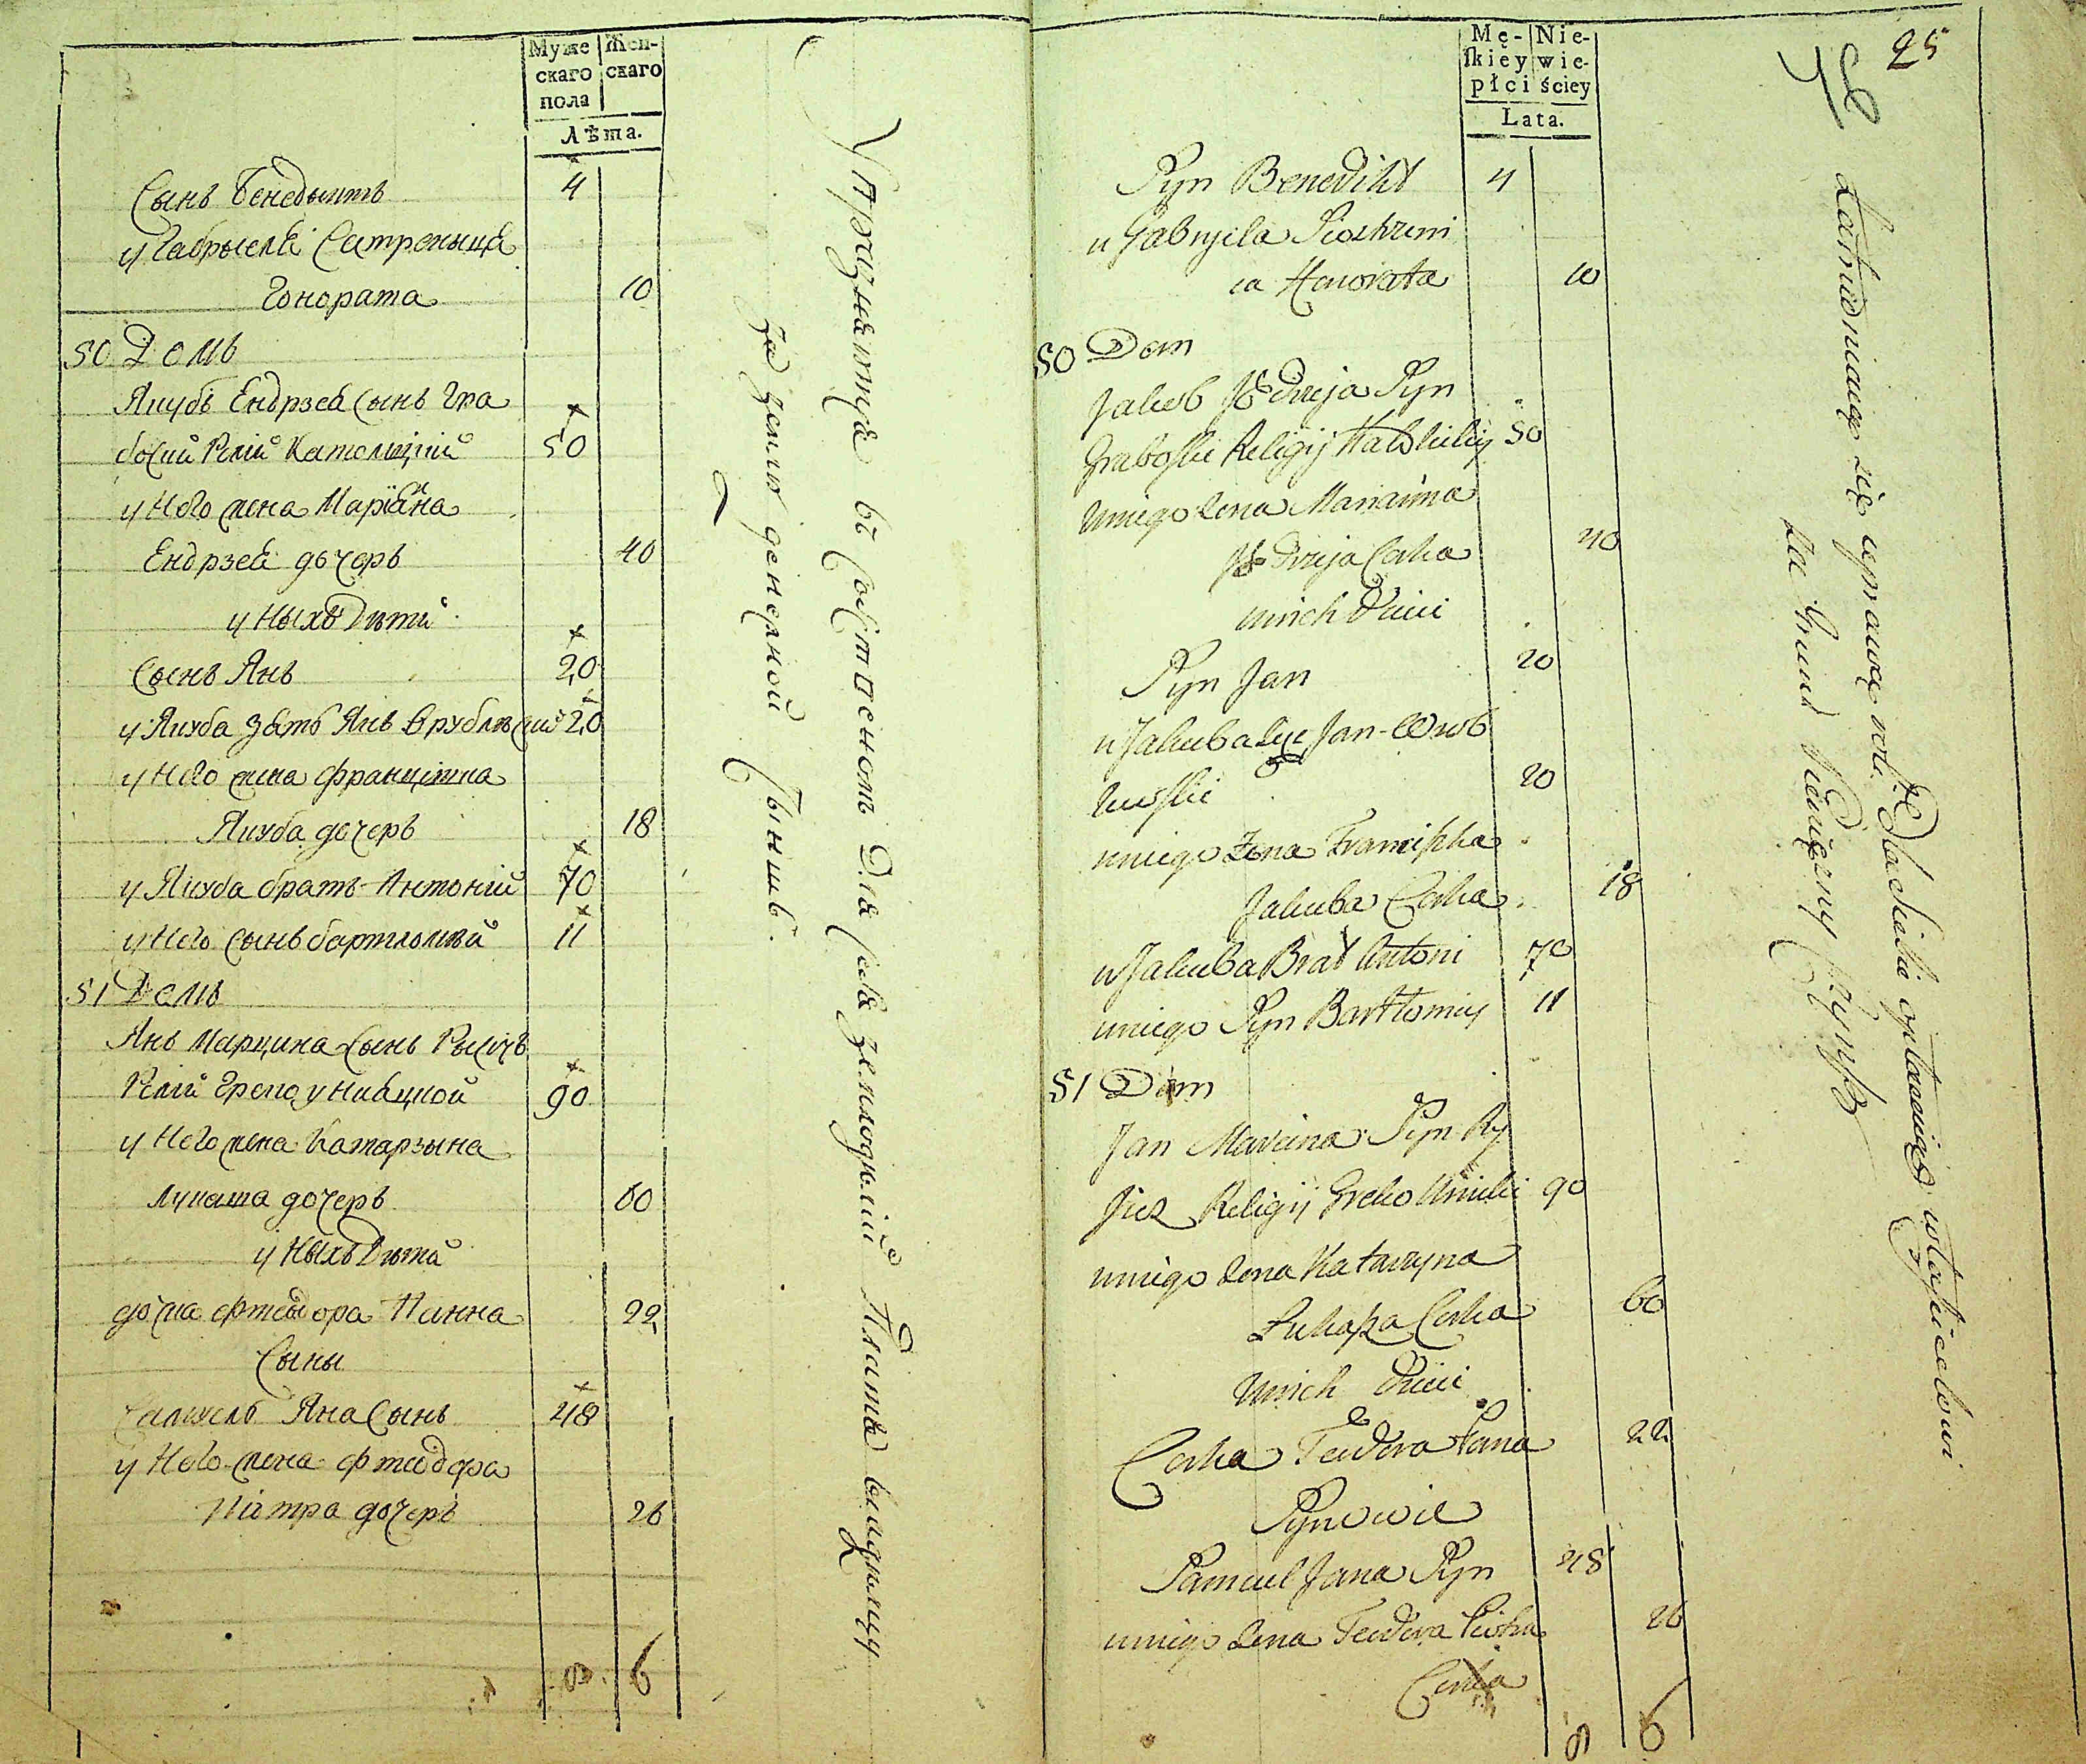 Муже
скаго
пола
Жен-
скаго
Лѣта.
Сынъ Бенедыктъ 4
у Габрыеля Састреныца
Гонората 10
50 Домъ
Якубъ Ендрзея Сынъ Гра
боский Релии Католицкий 50
у Него жена Марiяна
Ендрзея дочерь 40
у Ныхъ Дѣти
Сынъ Янъ 20
у Якуба зять Янъ Врублевский 20
у Него жена Францiшка
Якуба дочерь 18
у Якуба братъ Антонiй 70
у Него Сынъ бартломѣй 11
51 Домъ
Янъ Марцина Сынъ
Релии Греко унияцкой 90
у Него жена Катарзына
Лукаша дочерь 60
у Ныхъ Дѣти
дочка Фтеодора Панна 22
Сыны
Самуель Яна Сынъ 48
у Него жена Фтеодора
Пiотра дочерь 26
8 6
за земли денежной Чыншъ.
Mę-
skiey
płci
Nie-
wie-
ściey
Lata.
25
Syn Benedikt 4
u Gabryela Siostrzeni
ca Honorata 10
50 Dom
Jakob Jędrzeja Syn
Graboski Religij Katolickiy 50
uniego żona Marianna
Jędrzeja Corka 40
unich Dzieci
Syn Jan 20
u Jakuba Zięć Jan Wrob
lewski 20
uniego żona Franciszka
Jakuba Corka 18
u Jakuba Brat Antoni 70
uniego Syn Bartłomiy 11
51 Dom
Jan Marcina Syn Ry
Religij Greko Unicki 90
uniego żona Katarzyna
Łukasza Corka 60
Unich Dzieci
Corka Teodora Panna 22
Synowie
Samuel Jana Syn 48
uniego żona Teodora Piotra 26
Corka
8 6
Zatrudniaiąc się uprawą roli Podatki opłacaią właścicielowi
za Grunt Pieniężny Czynsz